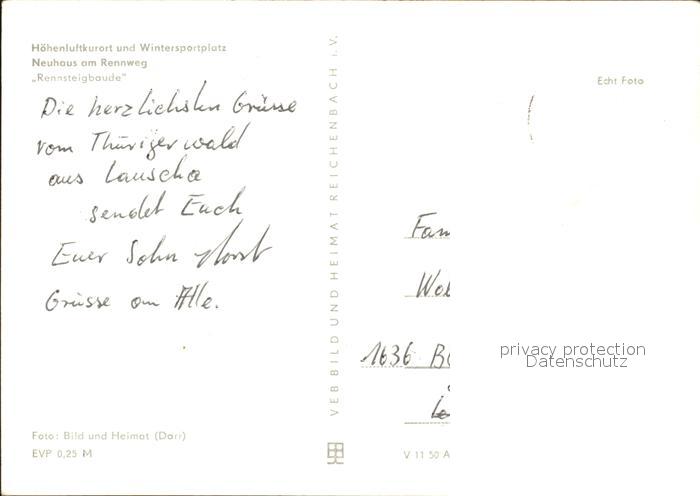 Höhenluftkurort und Wintersportplatz
Neuhaus am Rennweg
„Rennsteigbaude"
Die herzlichsten Grüsse
vom Thüringerwald
aus Lauscha
sendet Euch
Euer Sohn Horst
Grüsse an Alle.
Foto: Bild und Heimat (Darr)
EVP 0,25 M
VEB BILD UND HEIMAT REICHENBACH i. V.
Echt Foto
Fam
1636
V 11 50 A
privacy protection
Datenschutz